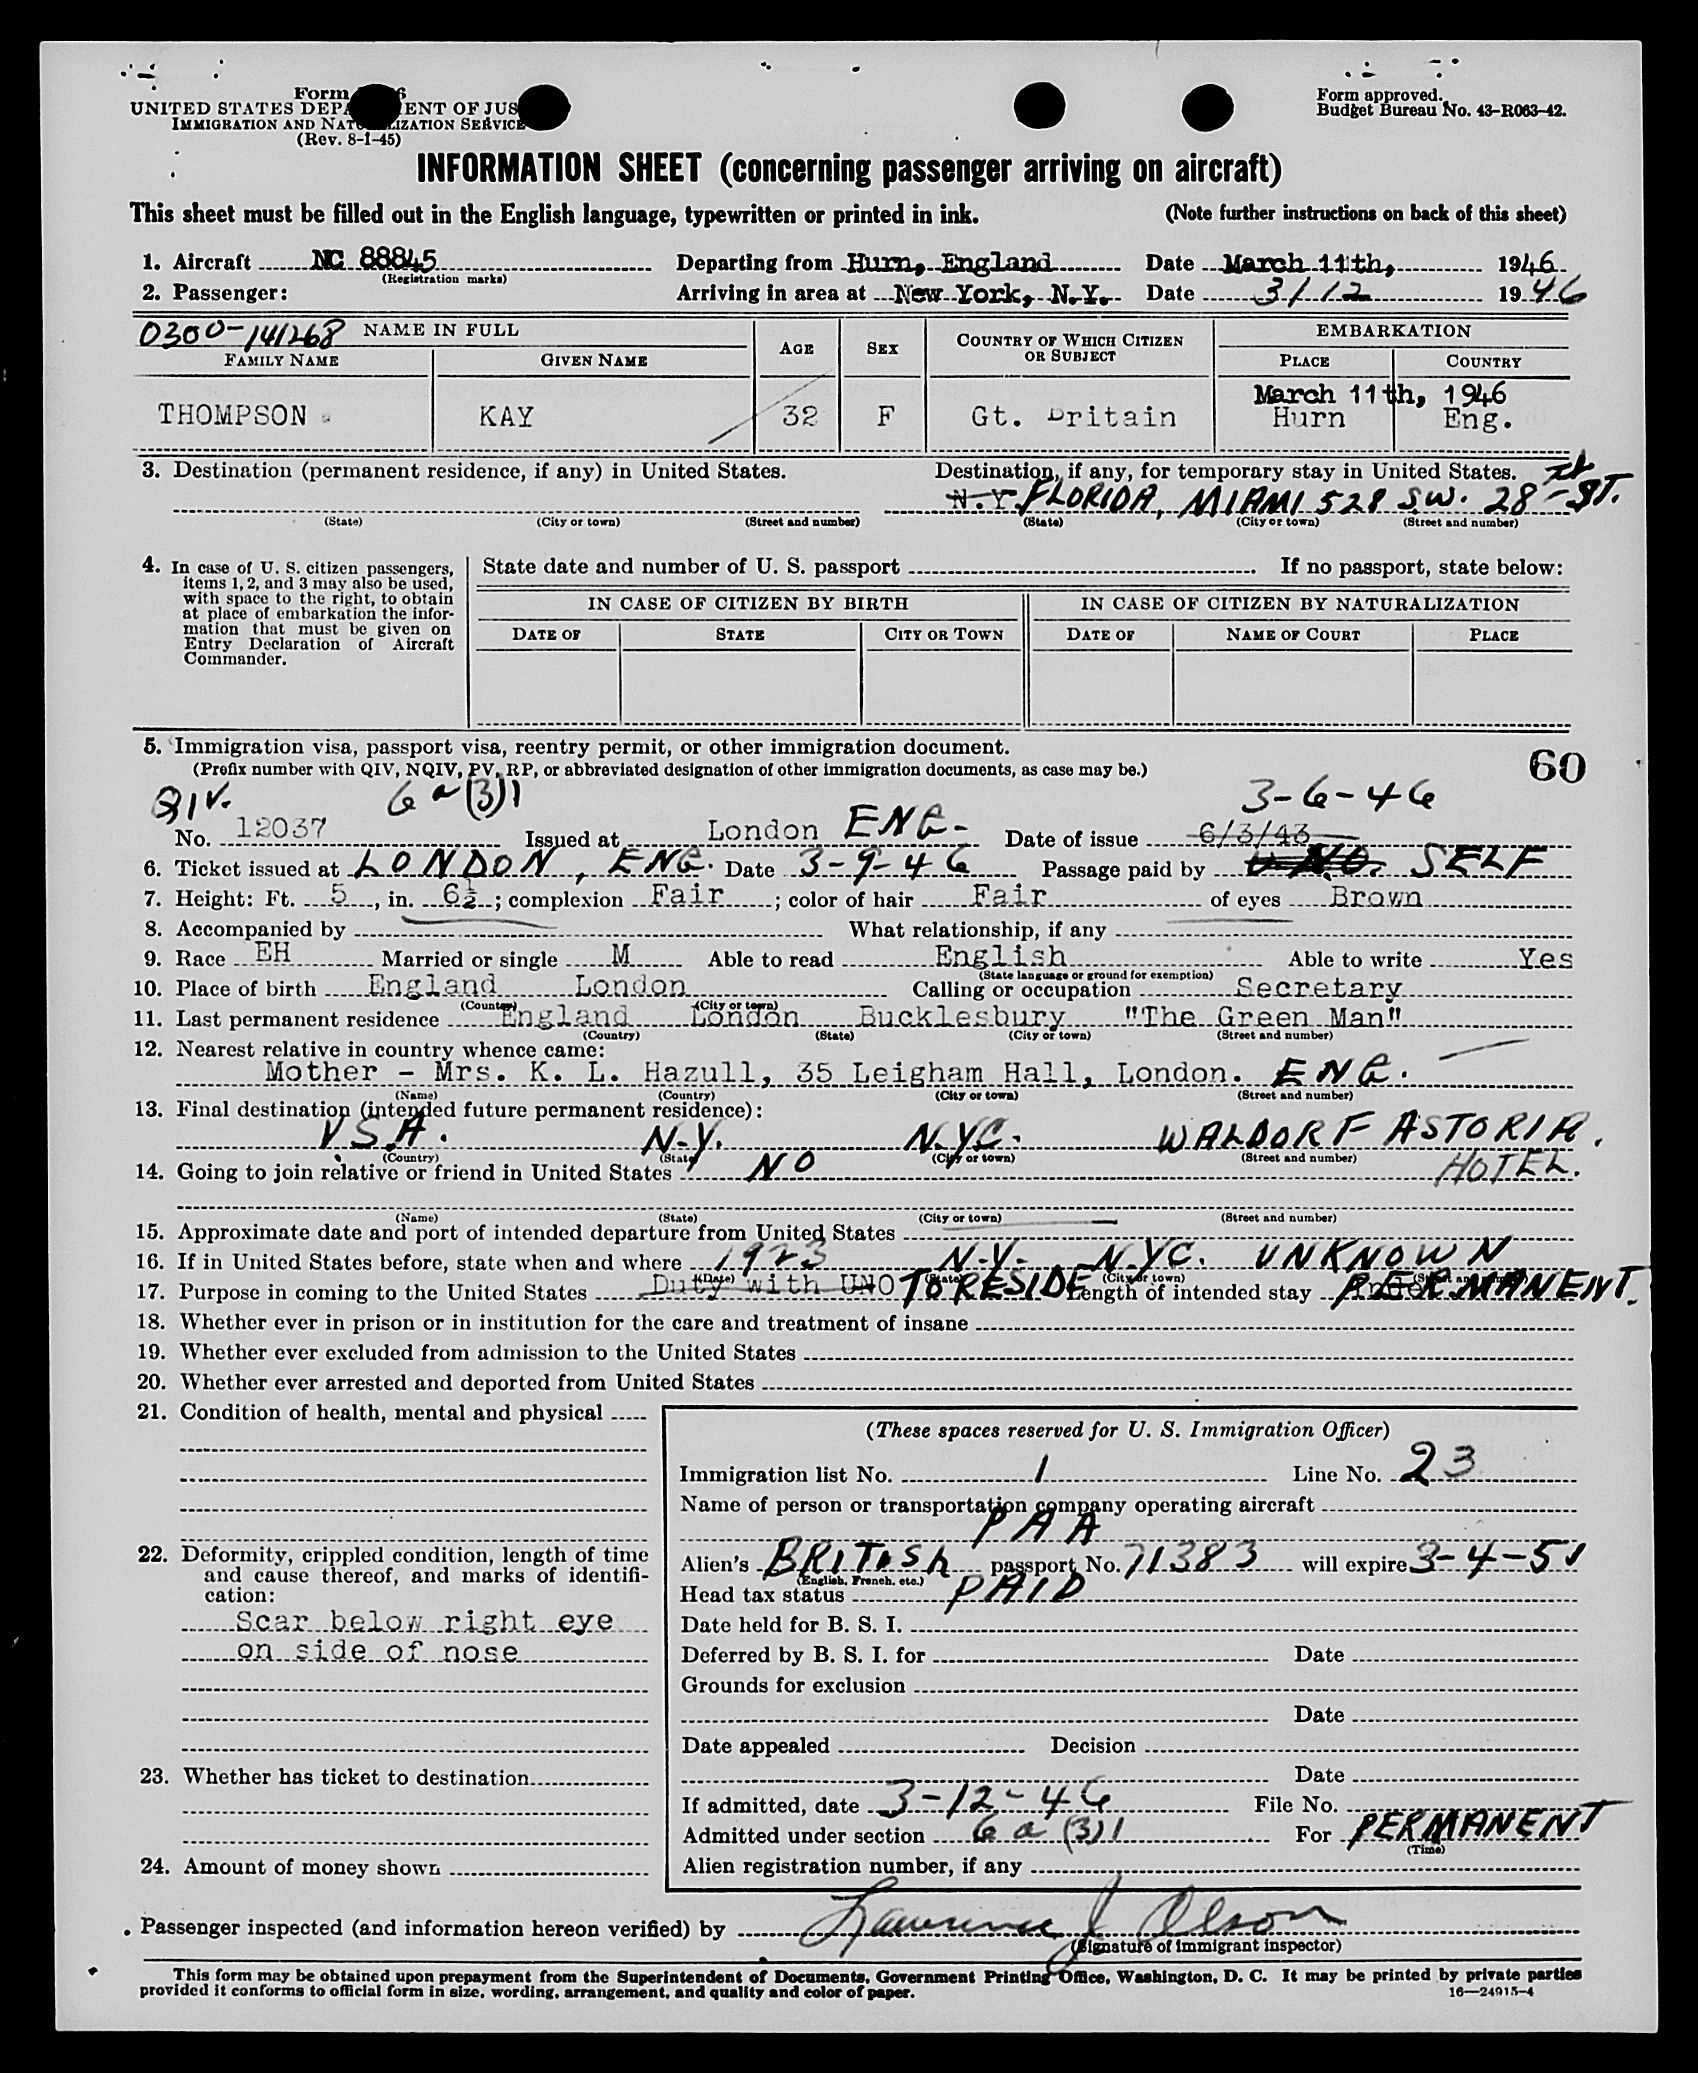 Form
UNITED STATES DEPA ENT OF JUS
IMMIGRATION AND NAT IZATION SERVICE
(Rev. 8-1-45)
Form approved.
Budget Bureau No. 43-R063-42.
INFORMATION SHEET (concerning passenger arriving on aircraft)
This sheet must be filled out in the English language, typewritten or printed in ink. (Note further instructions on back of this sheet)
1. Aircraft NC 88845 Departing from Hurn, England Date March 11th, 1946
(Registration marks)
2. Passenger: Arriving in area at New York, N.Y. Date 3/12 1946
0300-141268 NAME IN FULL AGE SEX COUNTRY OF WHICH CITIZEN OR SUBJECT EMBARKATION
FAMILY NAME GIVEN NAME PLACE COUNTRY
March 11th, 1946
THOMPSON KAY 32 F Gt. Britain Hurn Eng.
3. Destination (permanent residence, if any) in United States. Destination, if any, for temporary stay in United States.
N.Y. FLORIDA, MIAMI 528 S.W. 28 ST.
(State) (City or town) (Street and number) (State) (City or town) (Street and number)
4. In case of U. S. citizen passengers, items 1, 2, and 3 may also be used, with space to the right, to obtain at place of embarkation the information that must be given on Entry Declaration of Aircraft Commander.
State date and number of U. S. passport If no passport, state below:
IN CASE OF CITIZEN BY BIRTH IN CASE OF CITIZEN BY NATURALIZATION
DATE OF STATE CITY OR TOWN DATE OF NAME OF COURT PLACE
5. Immigration visa, passport visa, reentry permit, or other immigration document.
(Prefix number with QIV, NQIV, PV, RP, or abbreviated designation of other immigration documents, as case may be.) 60
QIV. 6 a (3) 1 3-6-46
No. 12037 Issued at London ENG. Date of issue 6/3/43
6. Ticket issued at LONDON, ENG. Date 3-9-46 Passage paid by U.N.O. SELF
7. Height: Ft. 5, in. 6½; complexion Fair; color of hair Fair of eyes Brown
8. Accompanied by What relationship, if any
9. Race EH Married or single M Able to read English Able to write Yes
(State language or ground for exemption)
10. Place of birth England London Calling or occupation Secretary
(Country) (City or town)
11. Last permanent residence England London Bucklesbury "The Green Man"
(Country) (State) (City or town) (Street and number)
12. Nearest relative in country whence came:
Mother - Mrs. K. L. Hazull, 35 Leigham Hall, London. ENG.
(Name) (Country) (City or town) (Street and number)
13. Final destination (intended future permanent residence):
U.S.A. N.Y. N.Y.C. WALDORF ASTORIA.
(Country) (State) (City or town) (Street and number) HOTEL.
14. Going to join relative or friend in United States NO
(Name) (State) (City or town) (Street and number)
15. Approximate date and port of intended departure from United States
16. If in United States before, state when and where 1923 N.Y. N.Y.C. UNKNOWN
(Date) (State) (City or town)
17. Purpose in coming to the United States Duty with UNO TO RESIDE Length of intended stay PERMANENT.
18. Whether ever in prison or in institution for the care and treatment of insane
19. Whether ever excluded from admission to the United States
20. Whether ever arrested and deported from United States
21. Condition of health, mental and physical
22. Deformity, crippled condition, length of time and cause thereof, and marks of identification:
Scar below right eye
on side of nose
23. Whether has ticket to destination
24. Amount of money shown
(These spaces reserved for U. S. Immigration Officer)
Immigration list No. 1 Line No. 23
Name of person or transportation company operating aircraft
PAA
Alien's BRITISH passport No. 71383 will expire 3-4-51
(English, French, etc.)
Head tax status PAID
Date held for B. S. I.
Deferred by B. S. I. for Date
Grounds for exclusion
Date
Date appealed Decision
Date
If admitted, date 3-12-46 File No.
Admitted under section 6 a (3) 1 For PERMANENT
(Time)
Alien registration number, if any
Passenger inspected (and information hereon verified) by Lawrence J Olson
(Signature of immigrant inspector)
This form may be obtained upon prepayment from the Superintendent of Documents, Government Printing Office, Washington, D. C. It may be printed by private parties
provided it conforms to official form in size, wording, arrangement, and quality and color of paper. 16—24915-4